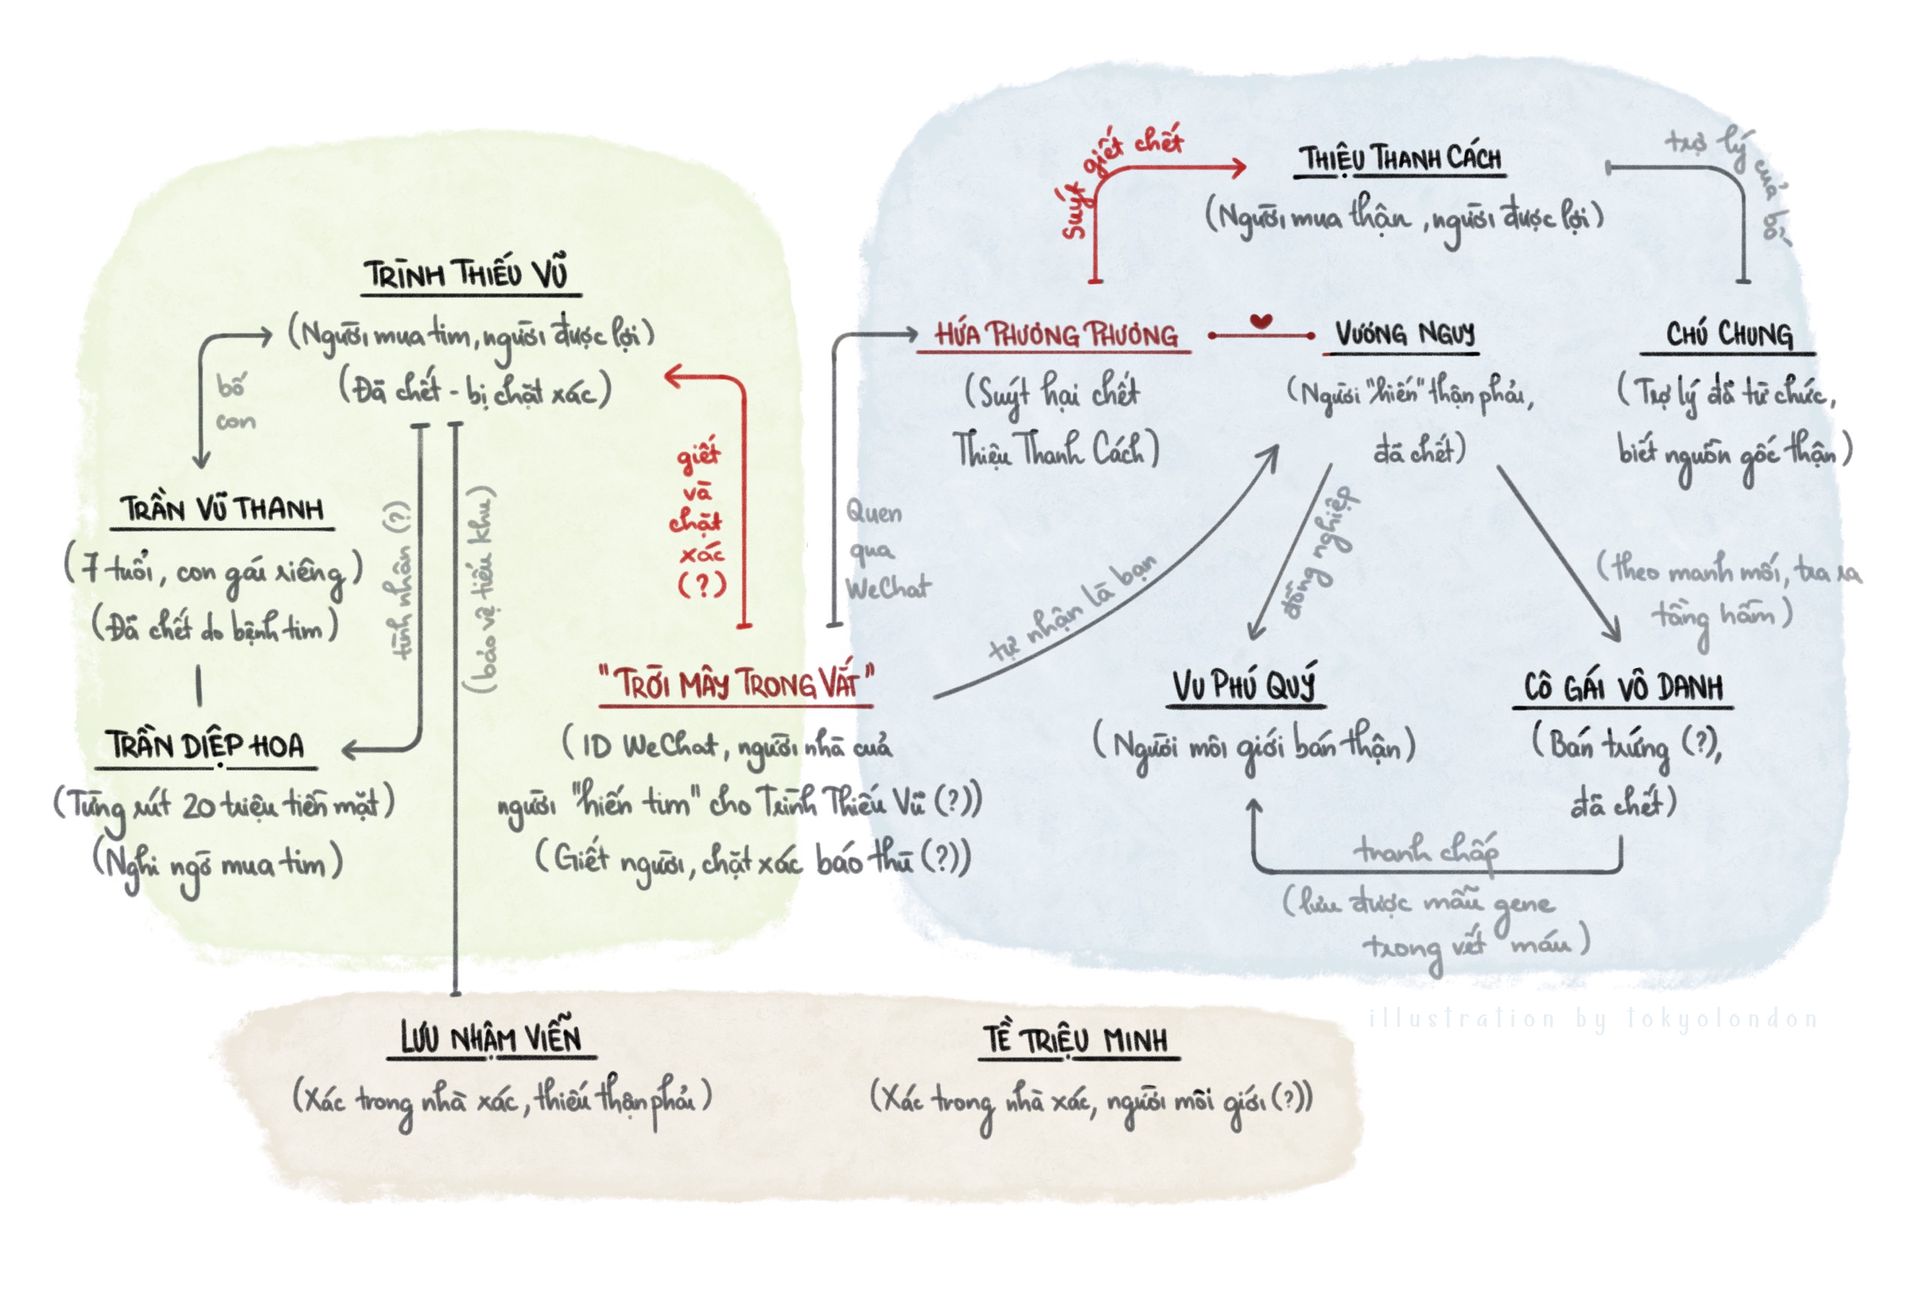 TRÌNH THIẾU VŨ
(Người mua tim, người được lợi)
(Đã chết - bị chặt xác)
bố
con
TRẦN VŨ THANH
(7 tuổi, con gái riêng)
(Đã chết do bệnh tim)
TRẦN DIỆP HOA
(Từng rút 20 triệu tiền mặt)
(Nghi ngờ mua tim)
tình nhân (?)
(bảo vệ tiểu khu)
giết
và
chặt
xác
(?)
"TRỜI MÂY TRONG VẮT"
(ID WeChat, người nhà của
người "hiến tim" cho Trình Thiếu Vũ (?))
(Giết người, chặt xác báo thù (?))
Quen
qua
WeChat
tự nhận là bạn
Suýt giết chết
THIỆU THANH CÁCH
(Người mua thận, người được lợi)
trợ lý của bố
HỨA PHƯƠNG PHƯƠNG
(Suýt hại chết
Thiệu Thanh Cách)
VƯƠNG NGUY
(Người "hiến" thận phải,
đã chết)
CHÚ CHUNG
(Trợ lý đã từ chức,
biết nguồn gốc thận)
đồng nghiệp
(theo manh mối, tra ra
tầng hầm)
VU PHÚ QUÝ
(Người môi giới bán thận)
CÔ GÁI VÔ DANH
(Bán trứng (?),
đã chết)
tranh chấp
(lưu được mẫu gene
trong vết máu)
illustration by tokyolondon
LƯU NHẬM VIỄN
(Xác trong nhà xác, thiếu thận phải)
TỀ TRIỆU MINH
(Xác trong nhà xác, người môi giới (?))